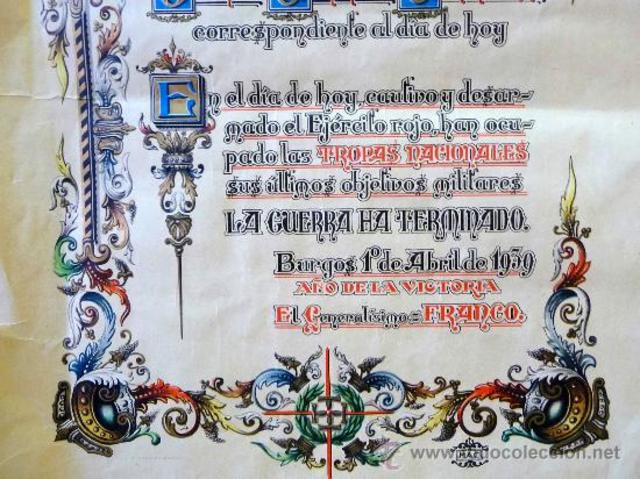 correspondiente al día de hoy
En el día de hoy, cautivo y desar-
mado el Ejército rojo, han ocu-
pado las TROPAS NACIONALES
sus últimos objetivos militares
LA GUERRA HA TERMINADO.
Burgos 1º de Abril de 1939
AÑO DE LA VICTORIA
El Generalísimo: FRANCO.
todocoleccion.net